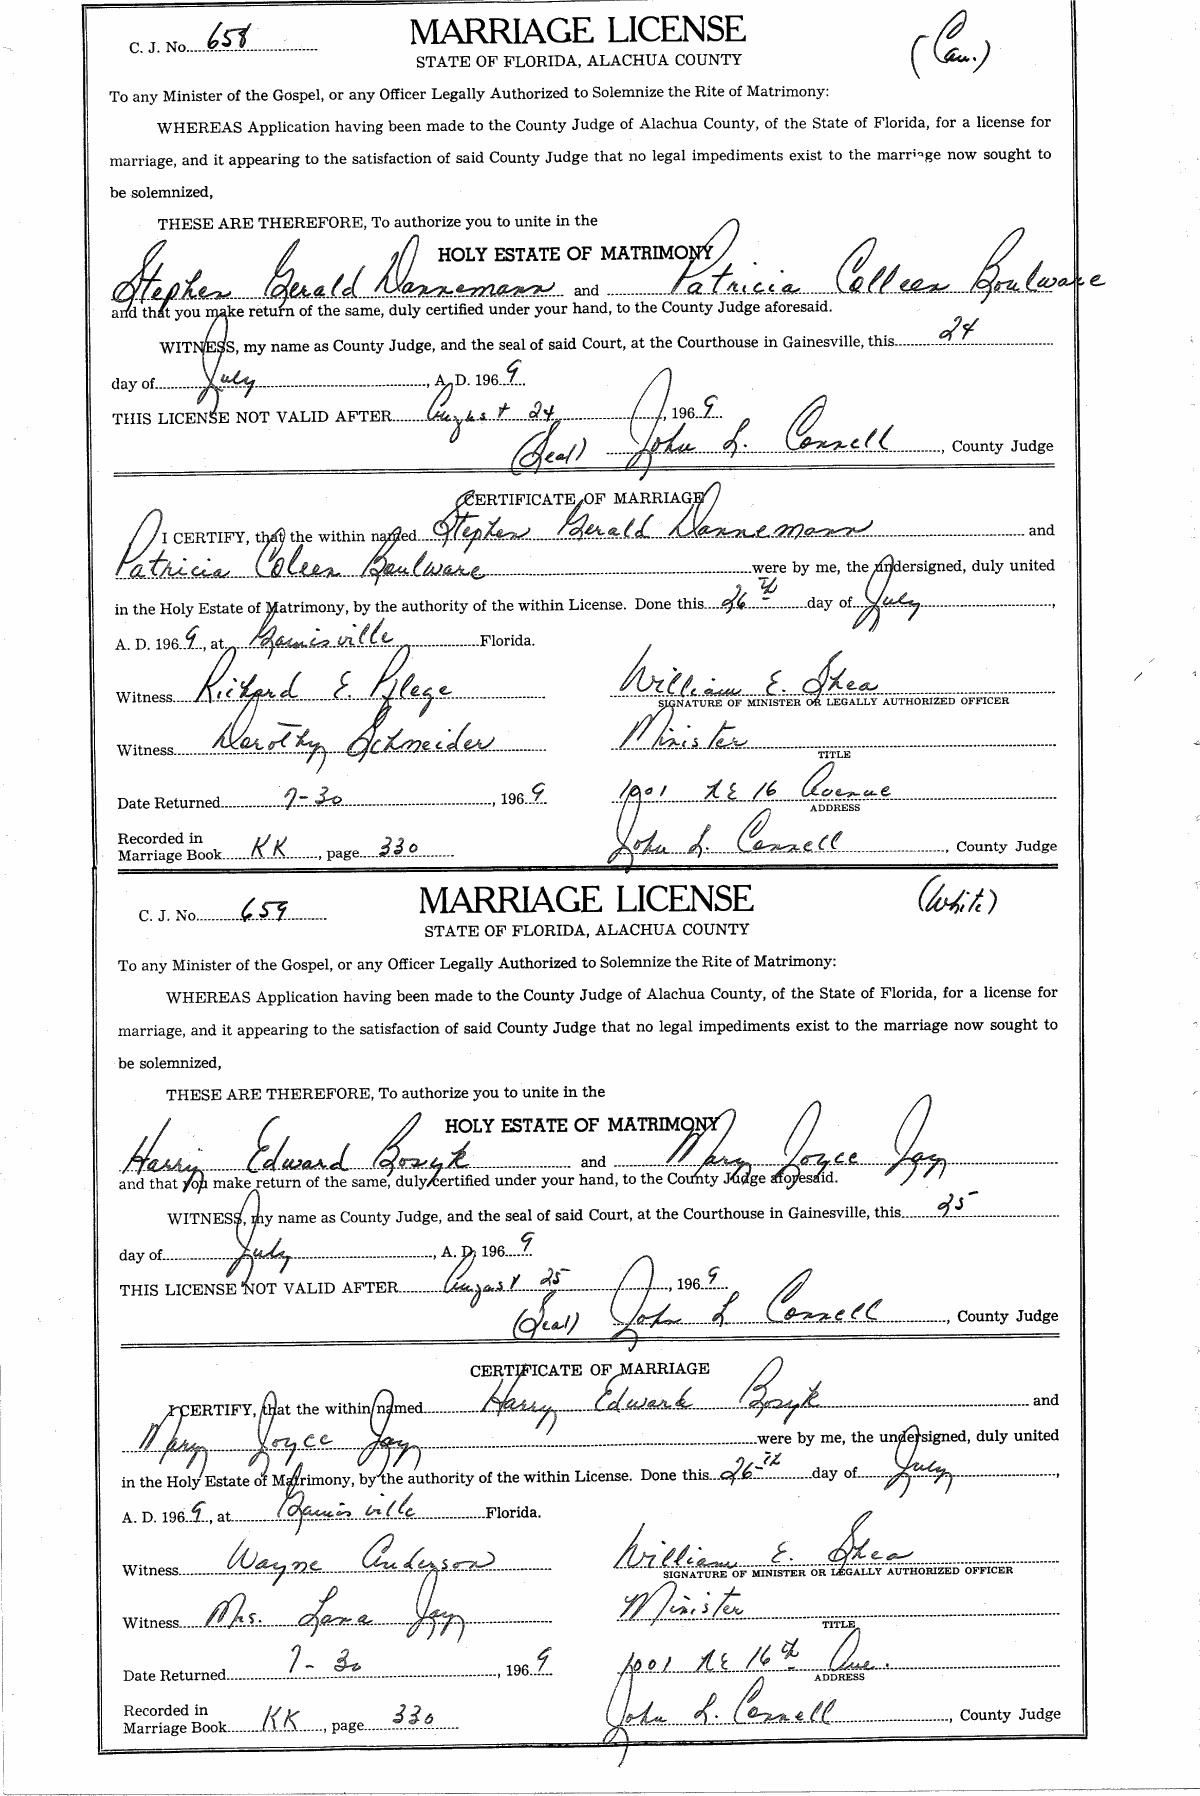 C. J. No. 658 MARRIAGE LICENSE (Cau.)
STATE OF FLORIDA, ALACHUA COUNTY
To any Minister of the Gospel, or any Officer Legally Authorized to Solemnize the Rite of Matrimony:
WHEREAS Application having been made to the County Judge of Alachua County, of the State of Florida, for a license for
marriage, and it appearing to the satisfaction of said County Judge that no legal impediments exist to the marriage now sought to
be solemnized,
THESE ARE THEREFORE, To authorize you to unite in the
HOLY ESTATE OF MATRIMONY
Stephen Gerald Dannemann and Patricia Colleen Boulware
and that you make return of the same, duly certified under your hand, to the County Judge aforesaid.
WITNESS, my name as County Judge, and the seal of said Court, at the Courthouse in Gainesville, this 24
day of July, A. D. 196 9
THIS LICENSE NOT VALID AFTER August 24, 196 9
(Seal) John L. Connell, County Judge
CERTIFICATE OF MARRIAGE
I CERTIFY, that the within named Stephen Gerald Dannemann and
Patricia Coleen Boulware were by me, the undersigned, duly united
in the Holy Estate of Matrimony, by the authority of the within License. Done this 26th day of July,
A. D. 196 9, at Gainisville Florida.
Witness Richard E. Pflege William E. Shea
SIGNATURE OF MINISTER OR LEGALLY AUTHORIZED OFFICER
Witness Dorothy Schneider Minister
TITLE
Date Returned 7-30, 196 9 1001 NE 16 Avenue
ADDRESS
Recorded in
Marriage Book KK, page 330 John L. Connell, County Judge
C. J. No. 659 MARRIAGE LICENSE (White)
STATE OF FLORIDA, ALACHUA COUNTY
To any Minister of the Gospel, or any Officer Legally Authorized to Solemnize the Rite of Matrimony:
WHEREAS Application having been made to the County Judge of Alachua County, of the State of Florida, for a license for
marriage, and it appearing to the satisfaction of said County Judge that no legal impediments exist to the marriage now sought to
be solemnized,
THESE ARE THEREFORE, To authorize you to unite in the
HOLY ESTATE OF MATRIMONY
Harry Edward Bosyk and Mary Joyce Jay
and that you make return of the same, duly certified under your hand, to the County Judge aforesaid.
WITNESS, my name as County Judge, and the seal of said Court, at the Courthouse in Gainesville, this 25
day of July, A. D. 196 9
THIS LICENSE NOT VALID AFTER August 25, 196 9
(Seal) John L Connell, County Judge
CERTIFICATE OF MARRIAGE
I CERTIFY, that the within named Harry Edward Bosyk and
Mary Joyce Jay were by me, the undersigned, duly united
in the Holy Estate of Matrimony, by the authority of the within License. Done this 26th day of July,
A. D. 196 9, at Gainisville Florida.
Witness Wayne Anderson William E. Shea
SIGNATURE OF MINISTER OR LEGALLY AUTHORIZED OFFICER
Witness Mrs. Lana Jay Minister
TITLE
Date Returned 7-30, 196 9 1001 NE 16th Ave.
ADDRESS
Recorded in
Marriage Book KK, page 330 John L. Connell, County Judge